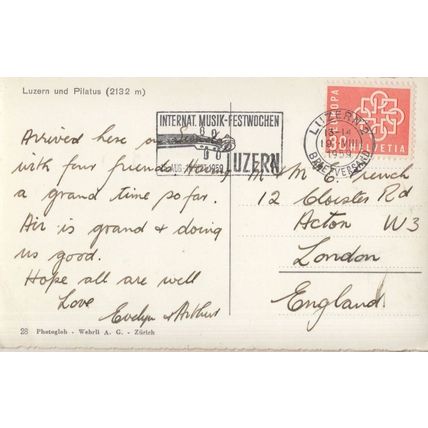 Luzern und Pilatus (2132 m)
INTERNAT. MUSIK-FESTWOCHEN
LUZERN
LUZERN
1959
BRIEFVERSAND
EUROPA
HELVETIA
Arrived here on
with four friends Having
a grand time so far.
Air is grand & doing
us good.
Hope all are well
Love
Evelyn & Arthur
M C French
12 Cloister Rd
Acton W3
London
England
28 Photogloh - Wehrli A. G. - Zürich